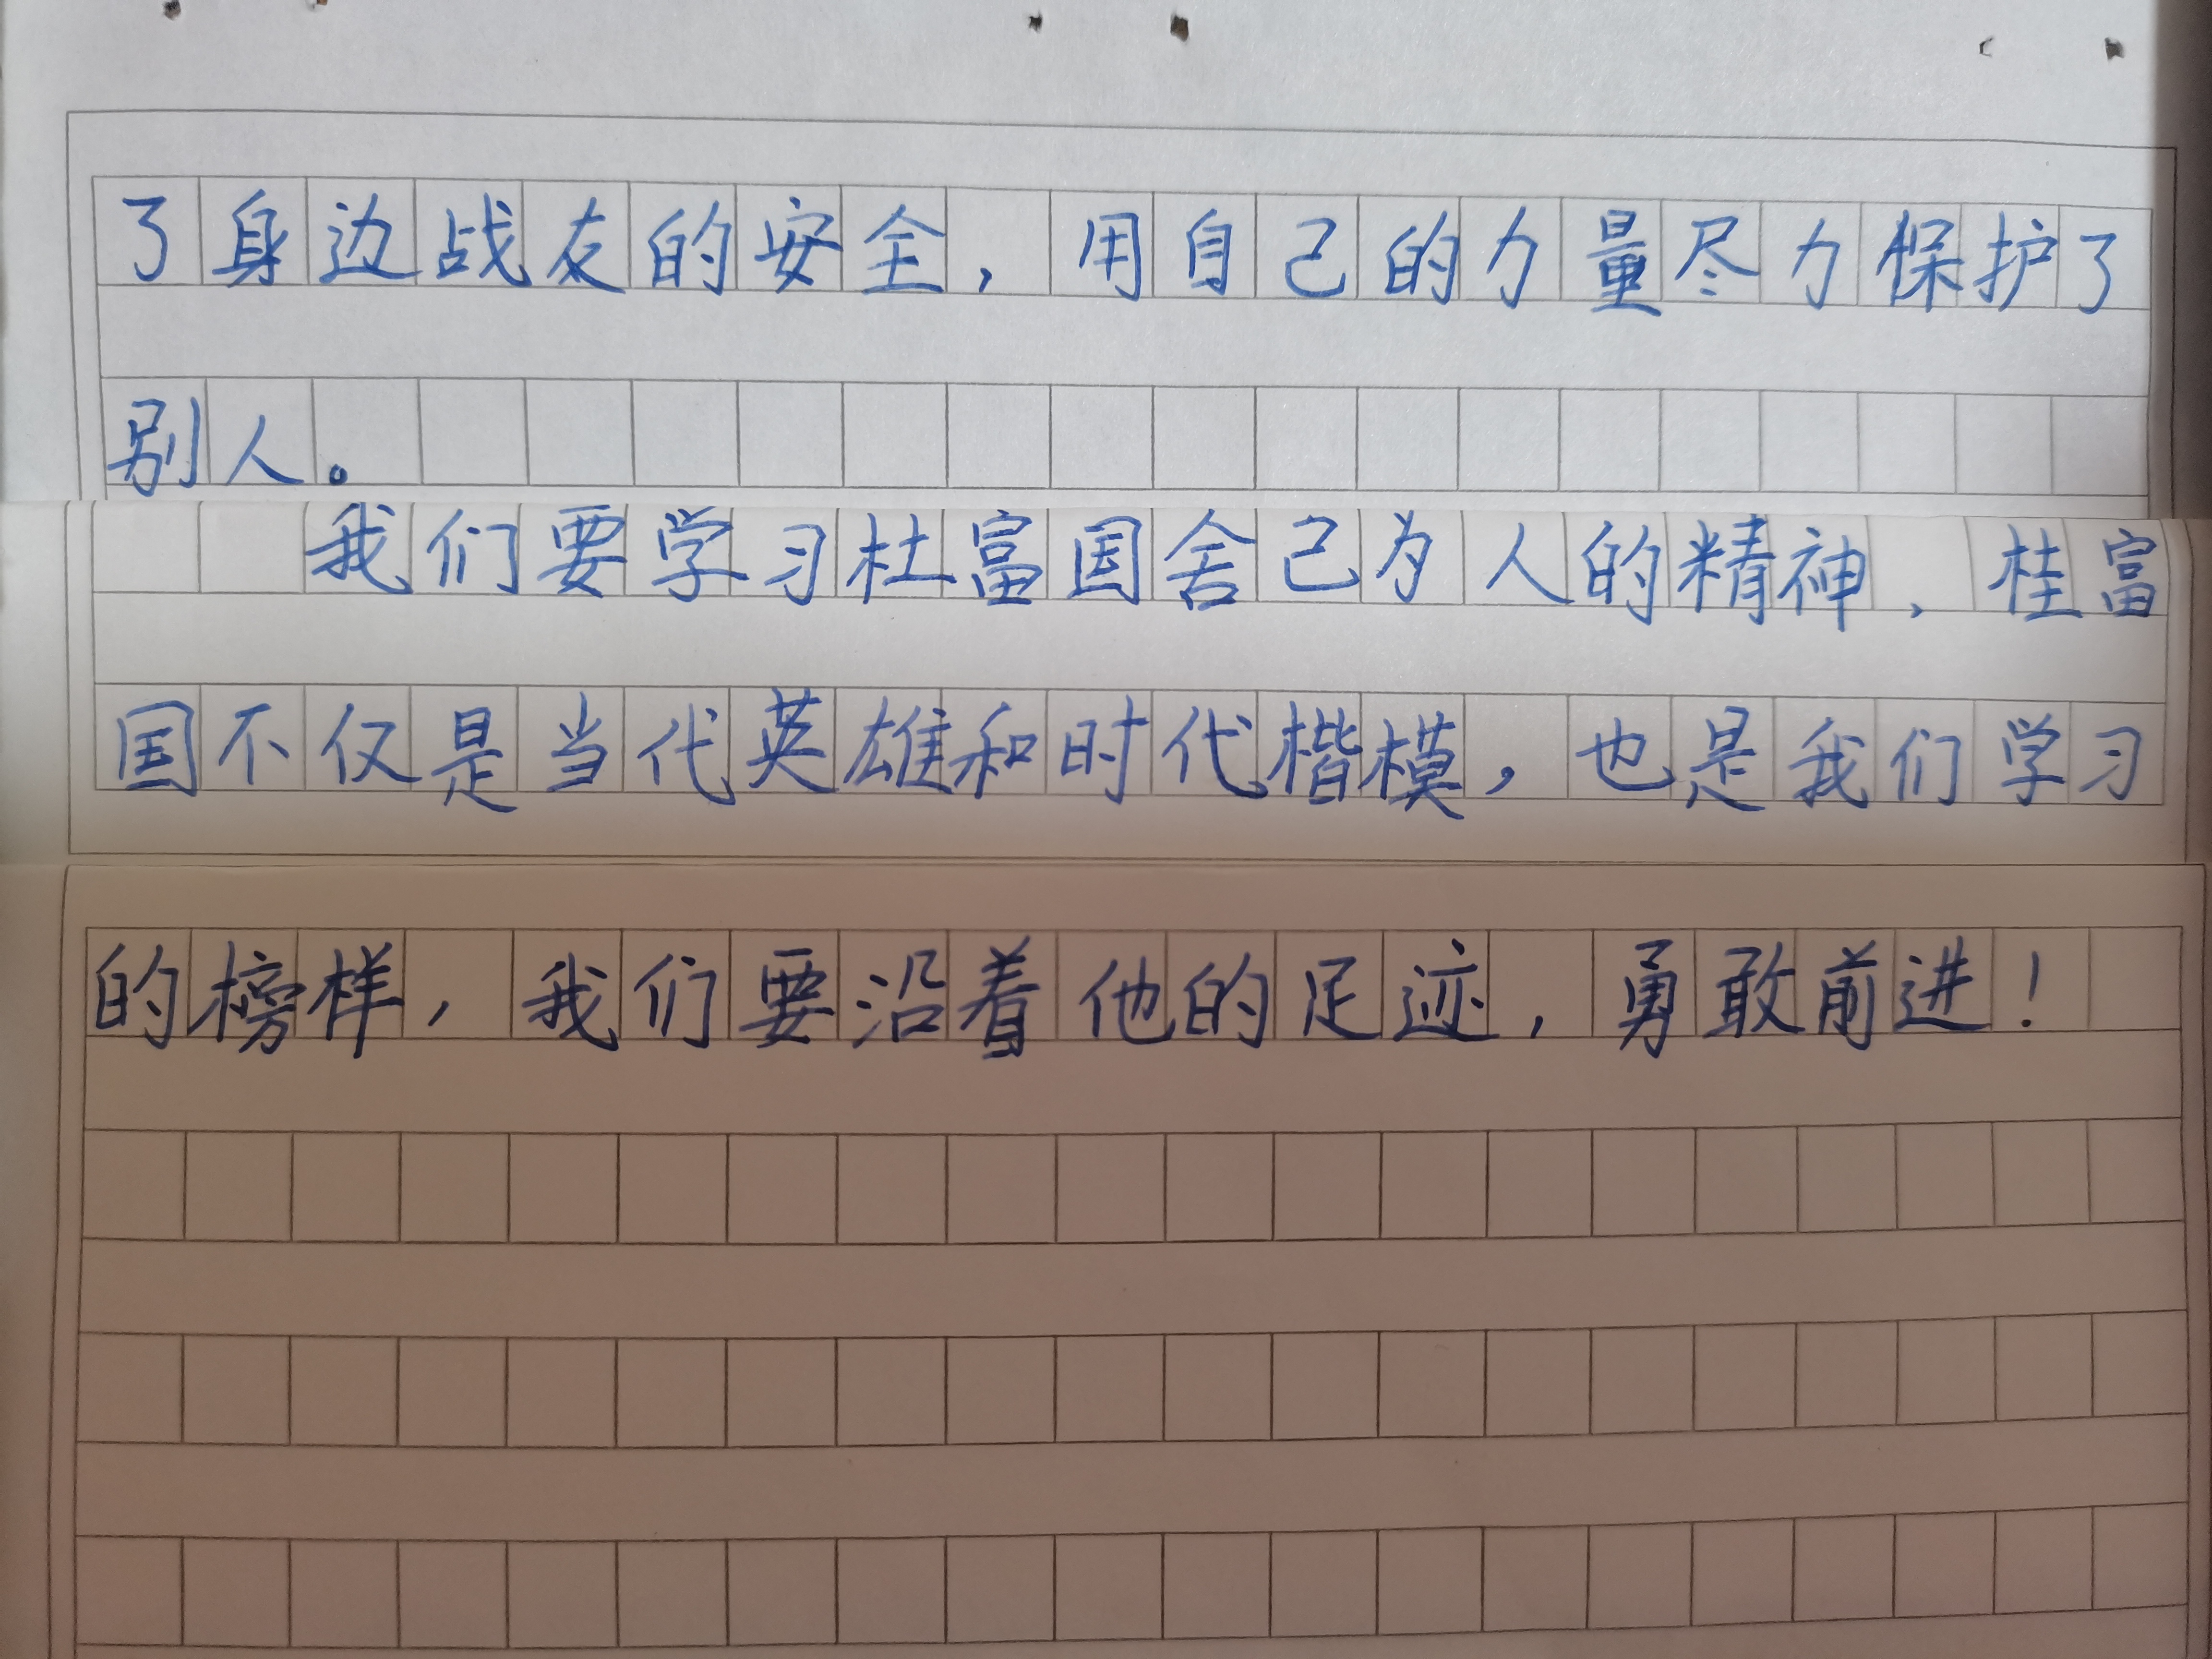 了身边战友的安全，用自己的力量尽力保护了
别人。
我们要学习杜富国舍己为人的精神，桂富
国不仅是当代英雄和时代楷模，也是我们学习
的榜样，我们要沿着他的足迹，勇敢前进！